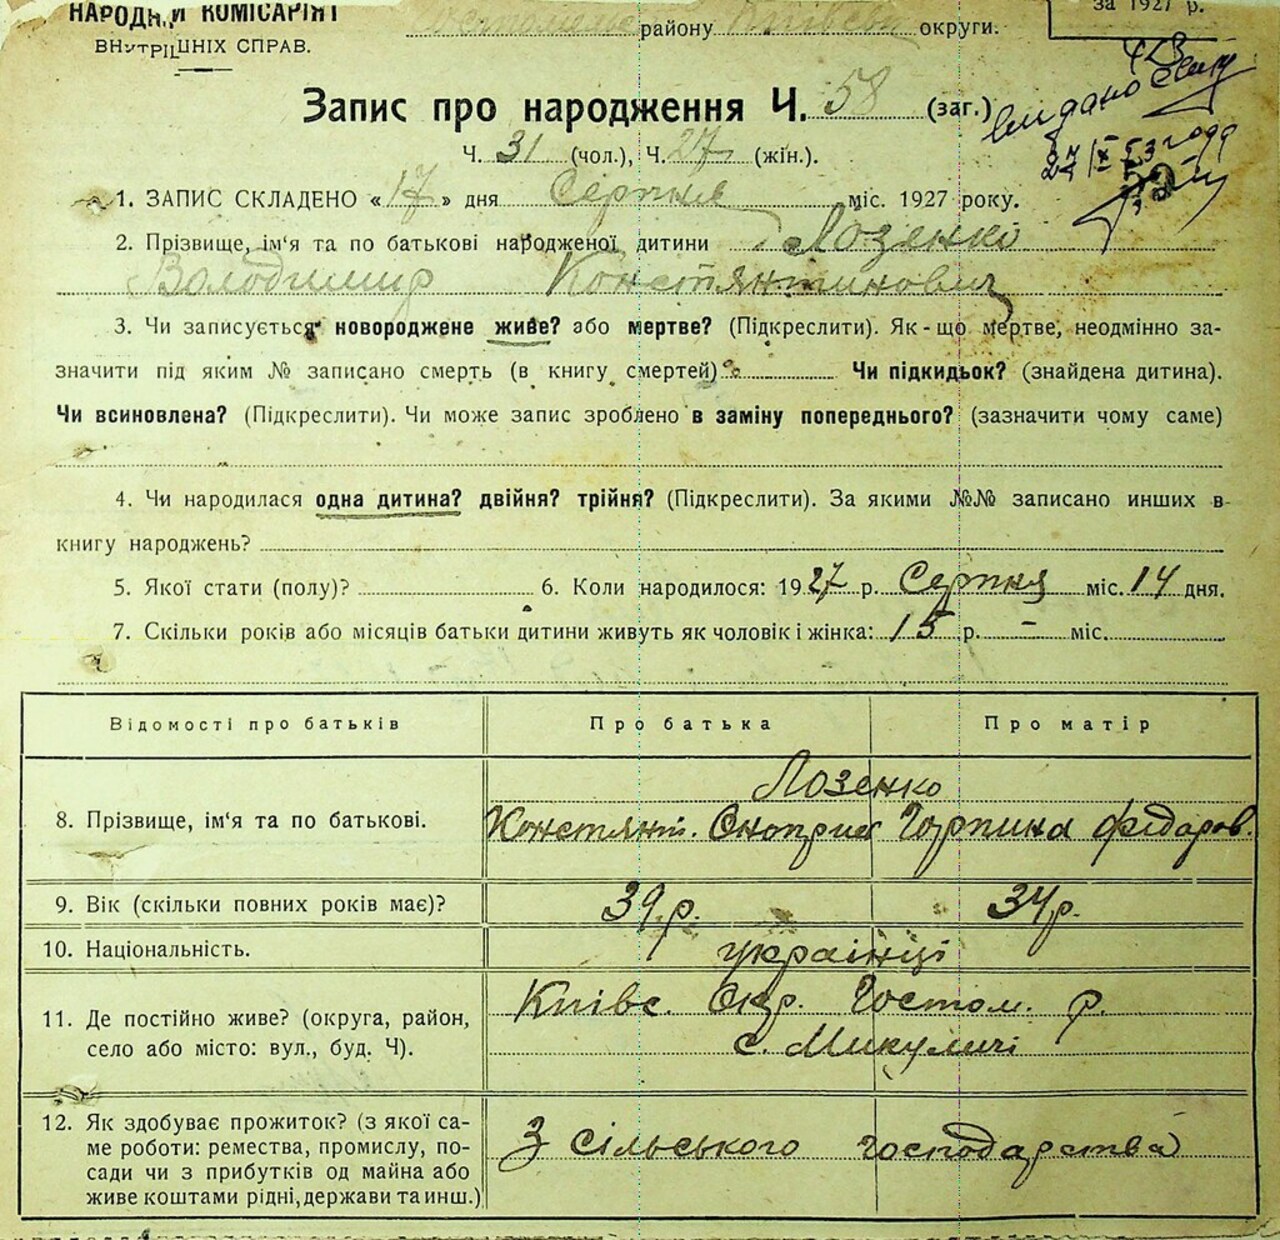 НАРОДНИЙ КОМІСАРІЯТ
ВНУТРІШНІХ СПРАВ.
району округи.
за 1927 р.
423
видано
27/IX 53 года
Запис про народження Ч. 58 (заг.)
Ч. 31 (чол.), Ч. 27 (жін.).
1. ЗАПИС СКЛАДЕНО «17» дня Серпня міс. 1927 року.
2. Прізвище, ім'я та по батькові народженої дитини Лозенко
Володимир Констянтинович
3. Чи записується новороджене живе? або мертве? (Підкреслити). Як-що мертве, неодмінно за-
значити під яким № записано смерть (в книгу смертей) Чи підкидьок? (знайдена дитина).
Чи всиновлена? (Підкреслити). Чи може запис зроблено в заміну попереднього? (зазначити чому саме)
4. Чи народилася одна дитина? двійня? трійня? (Підкреслити). За якими №№ записано инших в
книгу народжень?
5. Якої стати (полу)? 6. Коли народилося: 1927 р. Серпня міс. 14 дня.
7. Скільки років або місяців батьки дитини живуть як чоловік і жінка: 15 р. – міс.
Відомості про батьків Про батька Про матір
Лозенко
8. Прізвище, ім'я та по батькові. Констянт. Оноприє Горпина Федоров.
9. Вік (скільки повних років має)? 39 р. 34 р.
10. Національність. українці
11. Де постійно живе? (округа, район, Київс. Окр. Гостом. р.
село або місто: вул., буд. Ч). с. Микуличі
12. Як здобуває прожиток? (з якої са-
ме роботи: ремества, промислу, по- З сільського господарства
сади чи з прибутків од майна або
живе коштами рідні, держави та инш.)